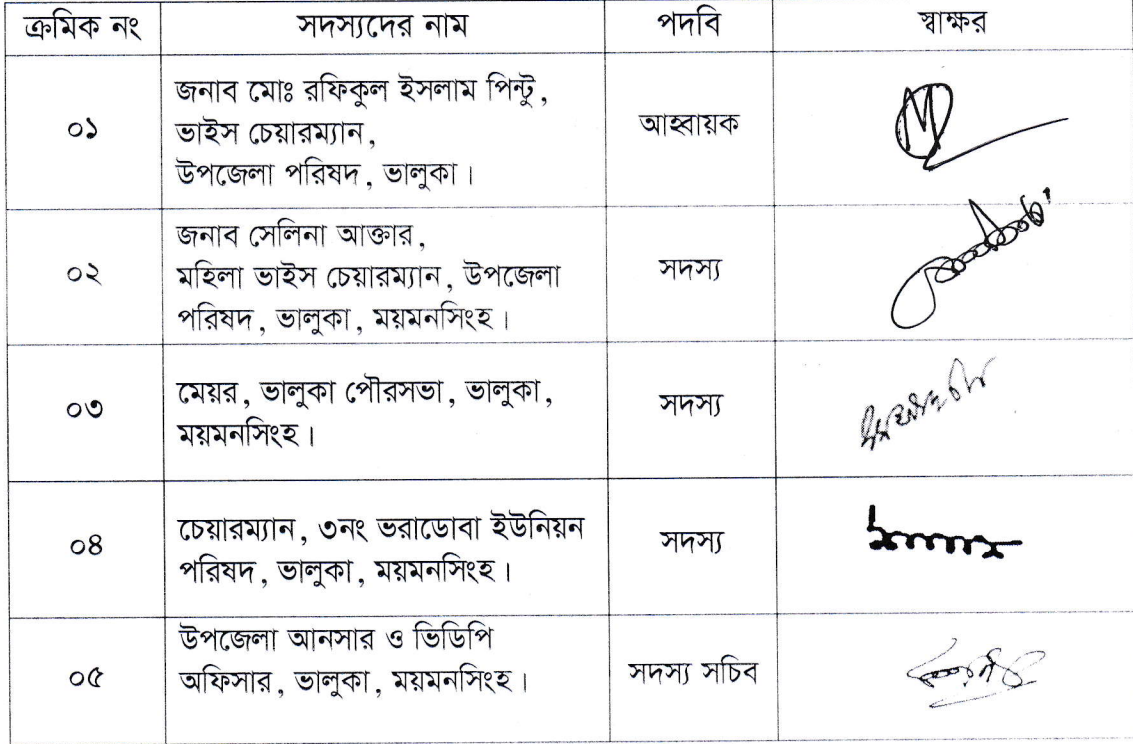 ক্রমিক নং সদস্যদের নাম পদবি স্বাক্ষর
০১ জনাব মোঃ রফিকুল ইসলাম পিন্টু,
ভাইস চেয়ারম্যান,
উপজেলা পরিষদ, ভালুকা।
আহ্বায়ক
০২ জনাব সেলিনা আক্তার,
মহিলা ভাইস চেয়ারম্যান, উপজেলা
পরিষদ, ভালুকা, ময়মনসিংহ।
সদস্য
০৩ মেয়র, ভালুকা পৌরসভা, ভালুকা,
ময়মনসিংহ।
সদস্য
০৪ চেয়ারম্যান, ৩নং ভরাডোবা ইউনিয়ন
পরিষদ, ভালুকা, ময়মনসিংহ।
সদস্য
০৫ উপজেলা আনসার ও ভিডিপি
অফিসার, ভালুকা, ময়মনসিংহ।
সদস্য সচিব